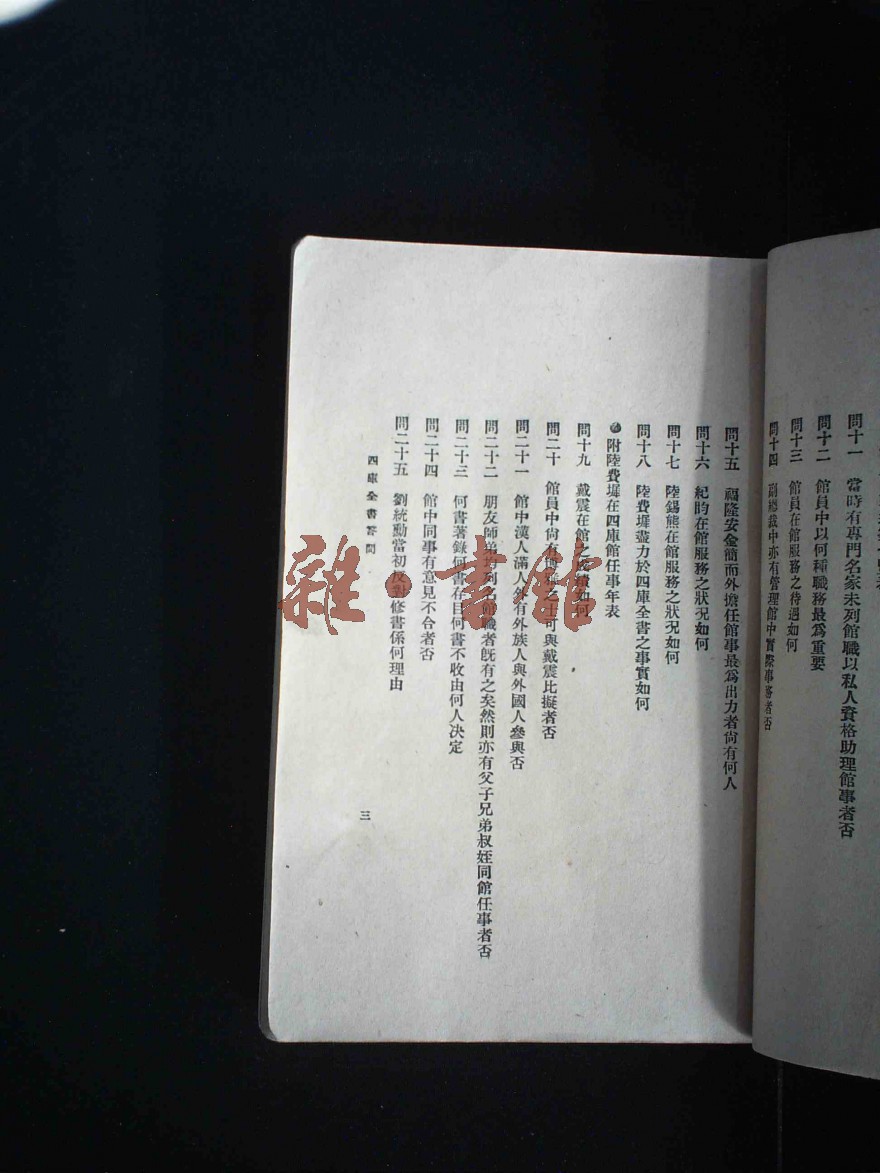 問十一　當時有專門名家未列館職以私人資格助理館事者否
問十二　館員中以何種職務最爲重要
問十三　館員在館服務之待遇如何
問十四　副總裁中亦有管理館中實際事務者否
問十五　福隆安金簡而外擔任館事最爲出力者尙有何人
問十六　紀昀在館服務之狀況如何
問十七　陸錫熊在館服務之狀況如何
問十八　陸費墀盡力於四庫全書之事實如何
附陸費墀在四庫館任事年表
問十九　戴震在館之成績如何
問二十　館員中尙有之士可與戴震比擬者否
問二十一　館中漢人滿人外有外族人與外國人參與否
問二十二　朋友師弟均列名館職者旣有之矣然則亦有父子兄弟叔姪同館任事者否
問二十三　何書著錄何書存目何書不收由何人決定
問二十四　館中同事有意見不合者否
問二十五　劉統勳當初反對修書係何理由
四庫全書答問
三
雜·書館